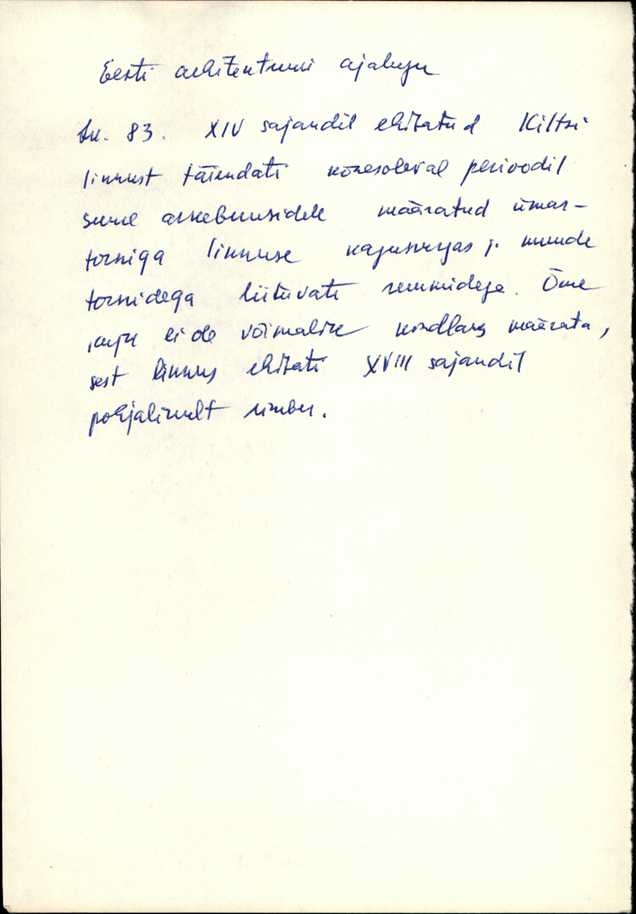 Eesti arhitektuuri ajalugu
Lk. 83. XIV sajandil ehitatud Kiltsi
linnust täiendati kõnesoleval perioodil
suure arkebuusidele määratud ümar-
torniga linnuse kagunurgas j. muude
tornidega liituvate ruumidega. Õue
kuju ei ole võimalik kindlaks määrata,
sest linnus ehitati XVIII sajandil
põhjalikult ümber.